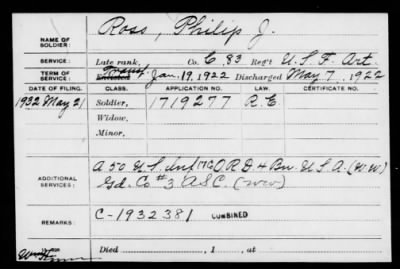 NAME OF SOLDIER: Ross, Philip J.
SERVICE: Late rank, Co. C, 83 Reg't U.S. F. Art.
TERM OF SERVICE: Jan. 19, 1922 Discharged May 7, 1922
DATE OF FILING. CLASS. APPLICATION NO. LAW. CERTIFICATE NO.
1932 May 21 Soldier, 1719277 R.E
Widow,
Minor,
A 50 U.S. Inf O R D 4 Bn. U.S.A. (W.W)
ADDITIONAL SERVICES: Gd. Co #3 A.S.C. (WW)
REMARKS: C-1932381 COMBINED
Died , 1 , at